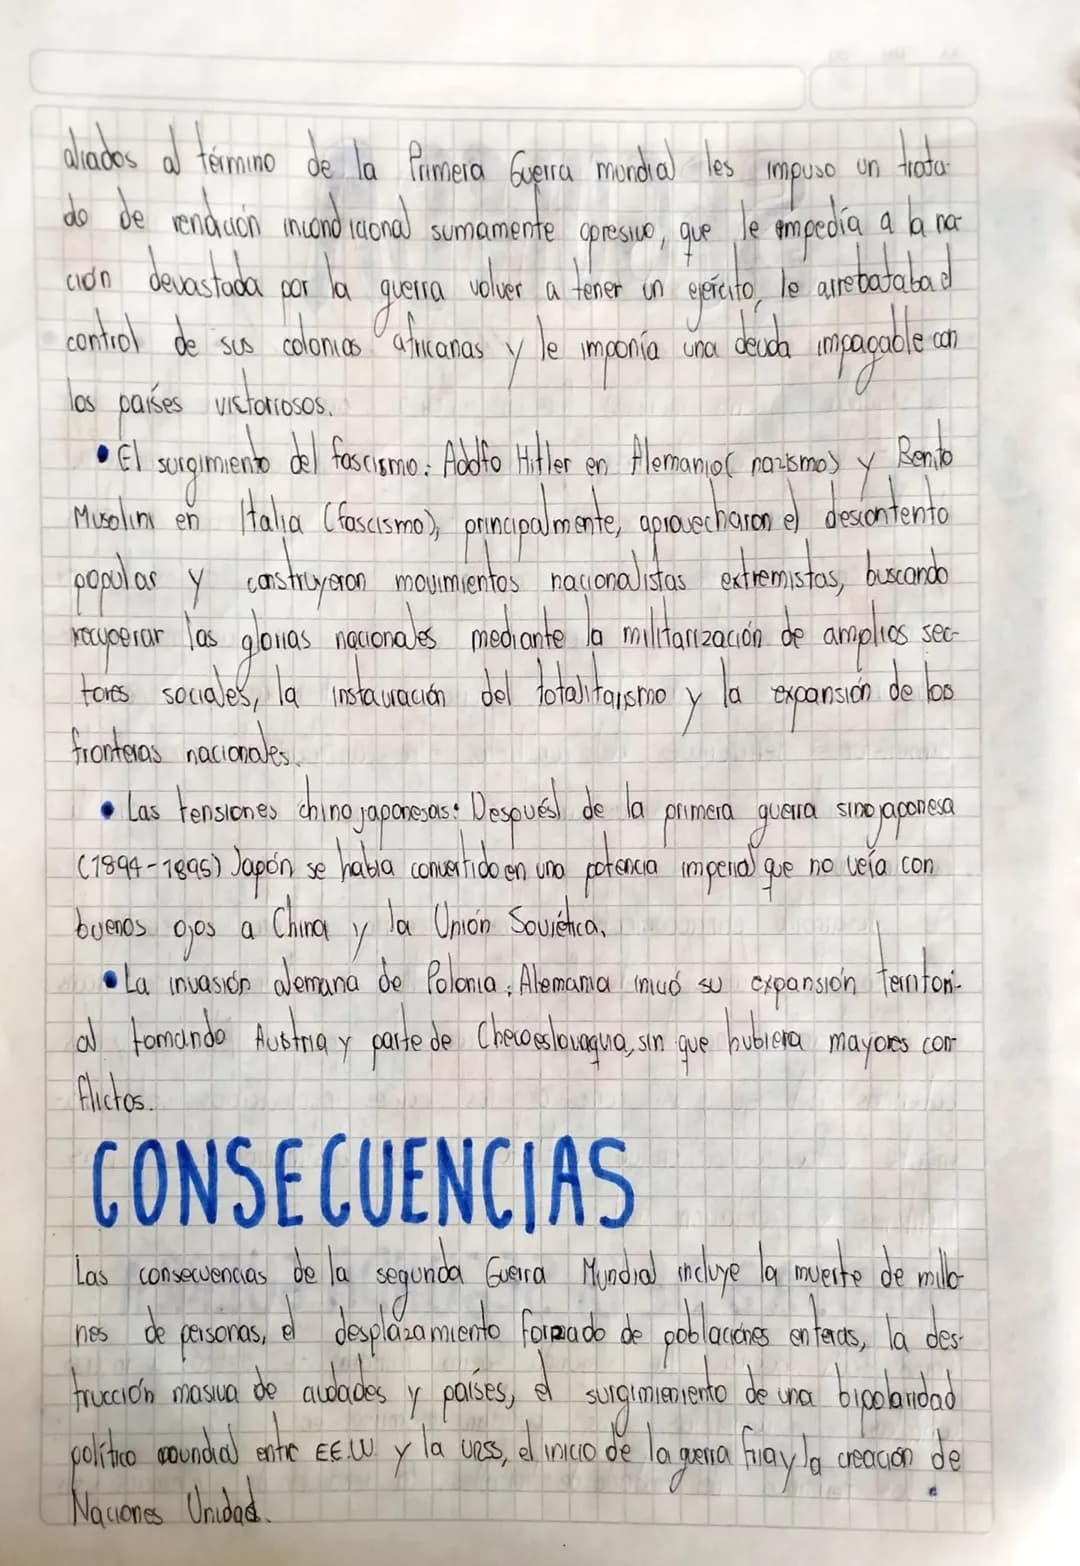 aliados al término de la Primera Guerra mundial les impuso un trata-
do de rendición incondicional sumamente opresivo, que le empedía a la na-
ción devastada por la guerra volver a tener un ejército, le arrebataba el
control de sus colonias africanas y le imponía una deuda impagable con
los países vistoriosos.
• El surgimiento del fascismo: Adolfo Hitler en Alemania( nazismo) y Benito
Musolini en Italia (fascismo), principalmente, aprovecharon el descontento
popular y construyeron movimientos nacionalistas extremistas, buscando
recuperar las glorias nacionales mediante la militarización de amplios sec-
tores sociales, la instauración del totalitarismo y la expansión de los
fronteras nacionales.
• Las tensiones chino japonesas: Después de la primera guerra sino japonesa
(1894-1895) Japón se había convertido en una potencia imperial que no veía con
buenos ojos a China y la Unión Soviética.
• La invasión alemana de Polonia: Alemania inició su expansión territori-
al tomando Austria y parte de Checoeslovaquia, sin que hubiera mayores con-
flictos.
CONSECUENCIAS
Las consecuencias de la segunda Guerra Mundial incluye la muerte de millo-
nes de personas, el desplazamiento forzado de poblaciones enteras, la des-
trucción masiva de ciudades y países, el surgimieniento de una bipolaridad
político mundial entre EE.UU y la URSS, el inicio de la guerra fría y la creación de
Naciones Unidad.